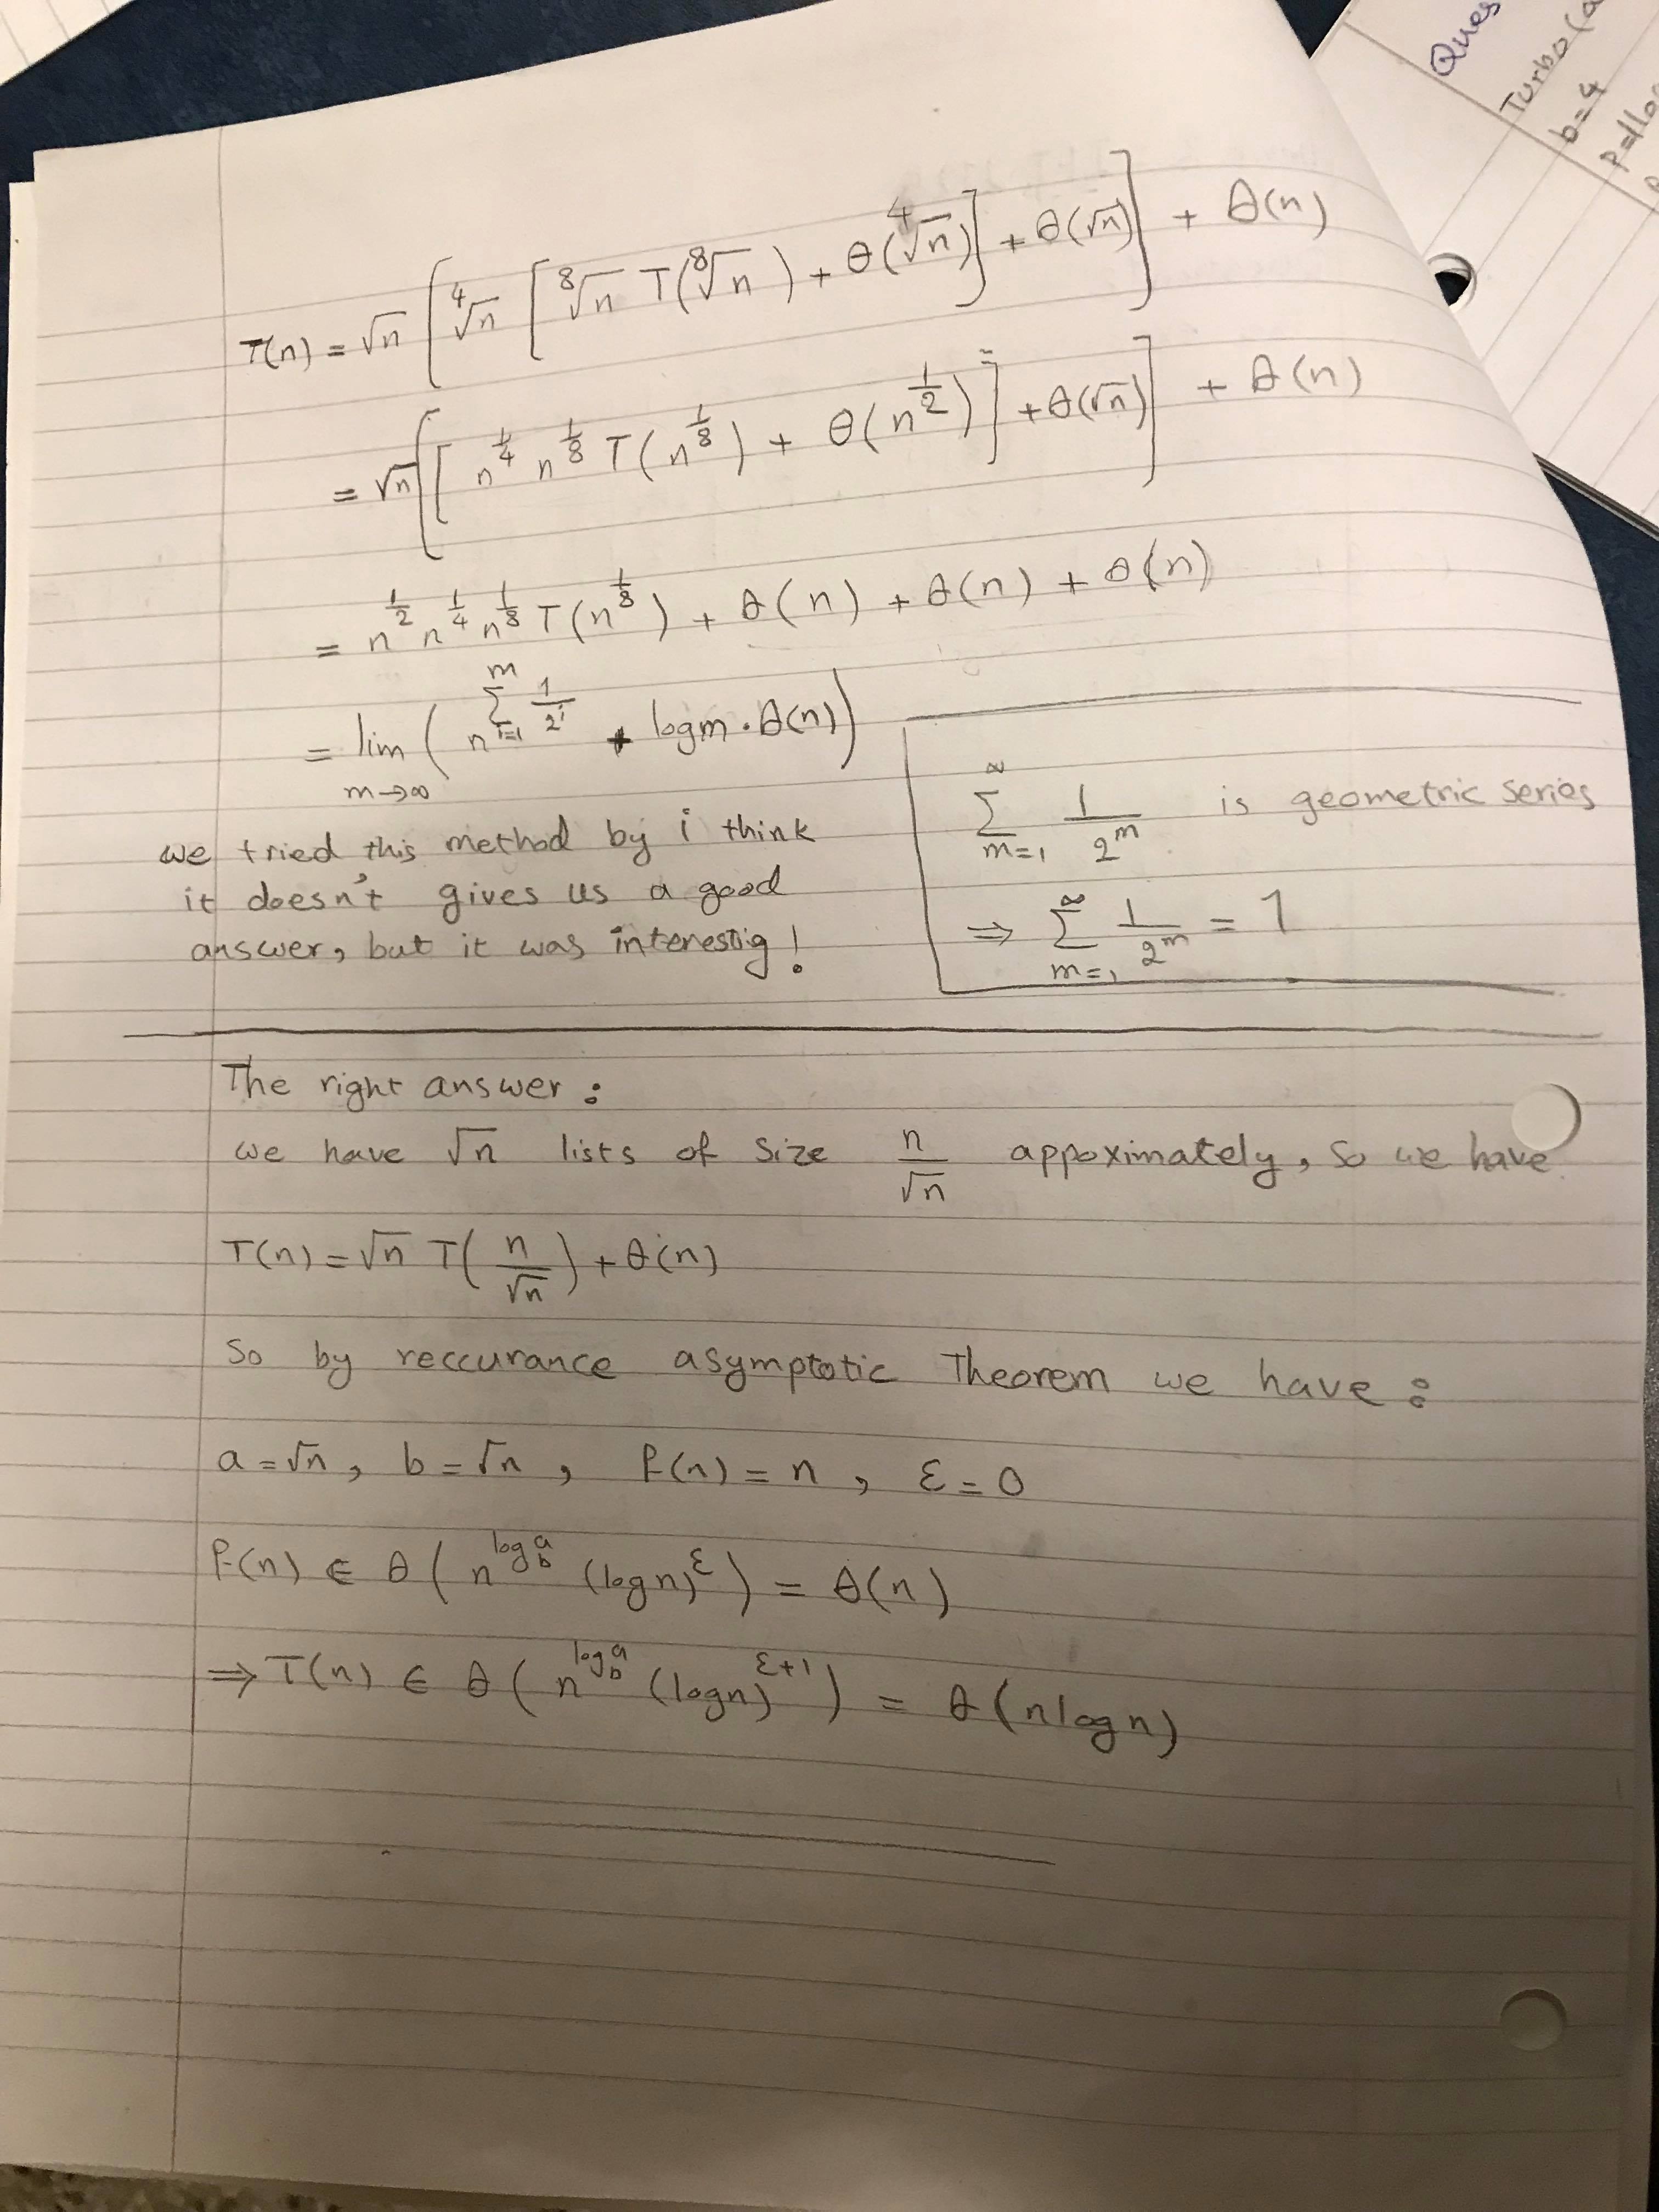 T(n) = √n [ ∜n [ ⁸√n T(⁸√n) + θ(∜n) ] + θ(√n) ] + θ(n)
= √n [ [ n^{1/4} n^{1/8} T(n^{1/8}) + θ(n^{1/2}) ] + θ(√n) ] + θ(n)
= n^{1/2} n^{1/4} n^{1/8} T(n^{1/8}) + θ(n) + θ(n) + θ(n)
= lim_{m→∞} ( n^{∑_{i=1}^{m} 1/2^i} + log m · θ(n) )
we tried this method by i think
it doesn't gives us a good
answer, but it was interestig!
∑_{m=1}^{∞} 1/2^m is geometric series
⇒ ∑_{m=1}^{∞} 1/2^m = 1
The right answer :
we have √n lists of size n/√n appoximately, so we have
T(n) = √n T( n/√n ) + θ(n)
So by reccurance asymptotic Theorem we have :
a = √n , b = √n , f(n) = n , ε = 0
f(n) ∈ θ ( n^{log_b^a} (log n)^ε ) = θ(n)
⇒ T(n) ∈ θ ( n^{log_b^a} (log n)^{ε+1} ) = θ (n log n)
Ques
Turbo (a
b=4